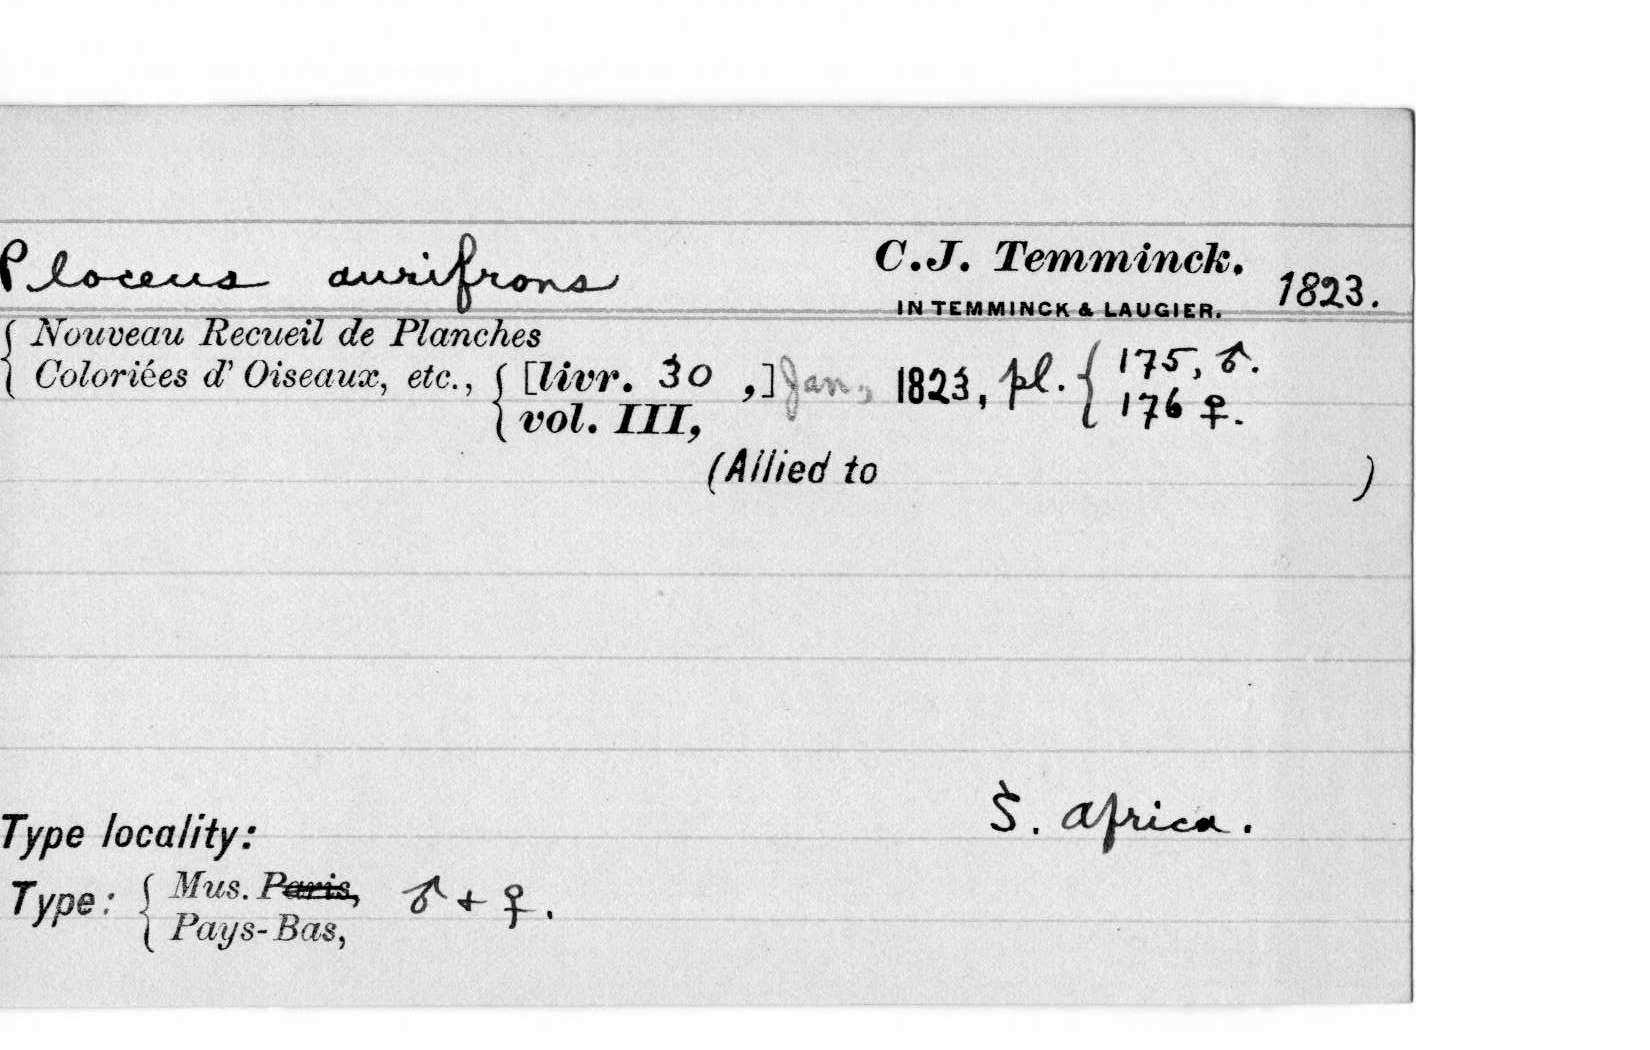 Ploceus aurifrons C.J. Temminck. 1823.
IN TEMMINCK & LAUGIER.
{ Nouveau Recueil de Planches
Coloriées d' Oiseaux, etc., { [livr. 30 ,] Jan, 1823, pl. { 175, ♂.
vol. III, 176 ♀.
(Allied to )
Type locality: S. Africa.
Type: { Mus. Paris, ♂ + ♀.
Pays-Bas,